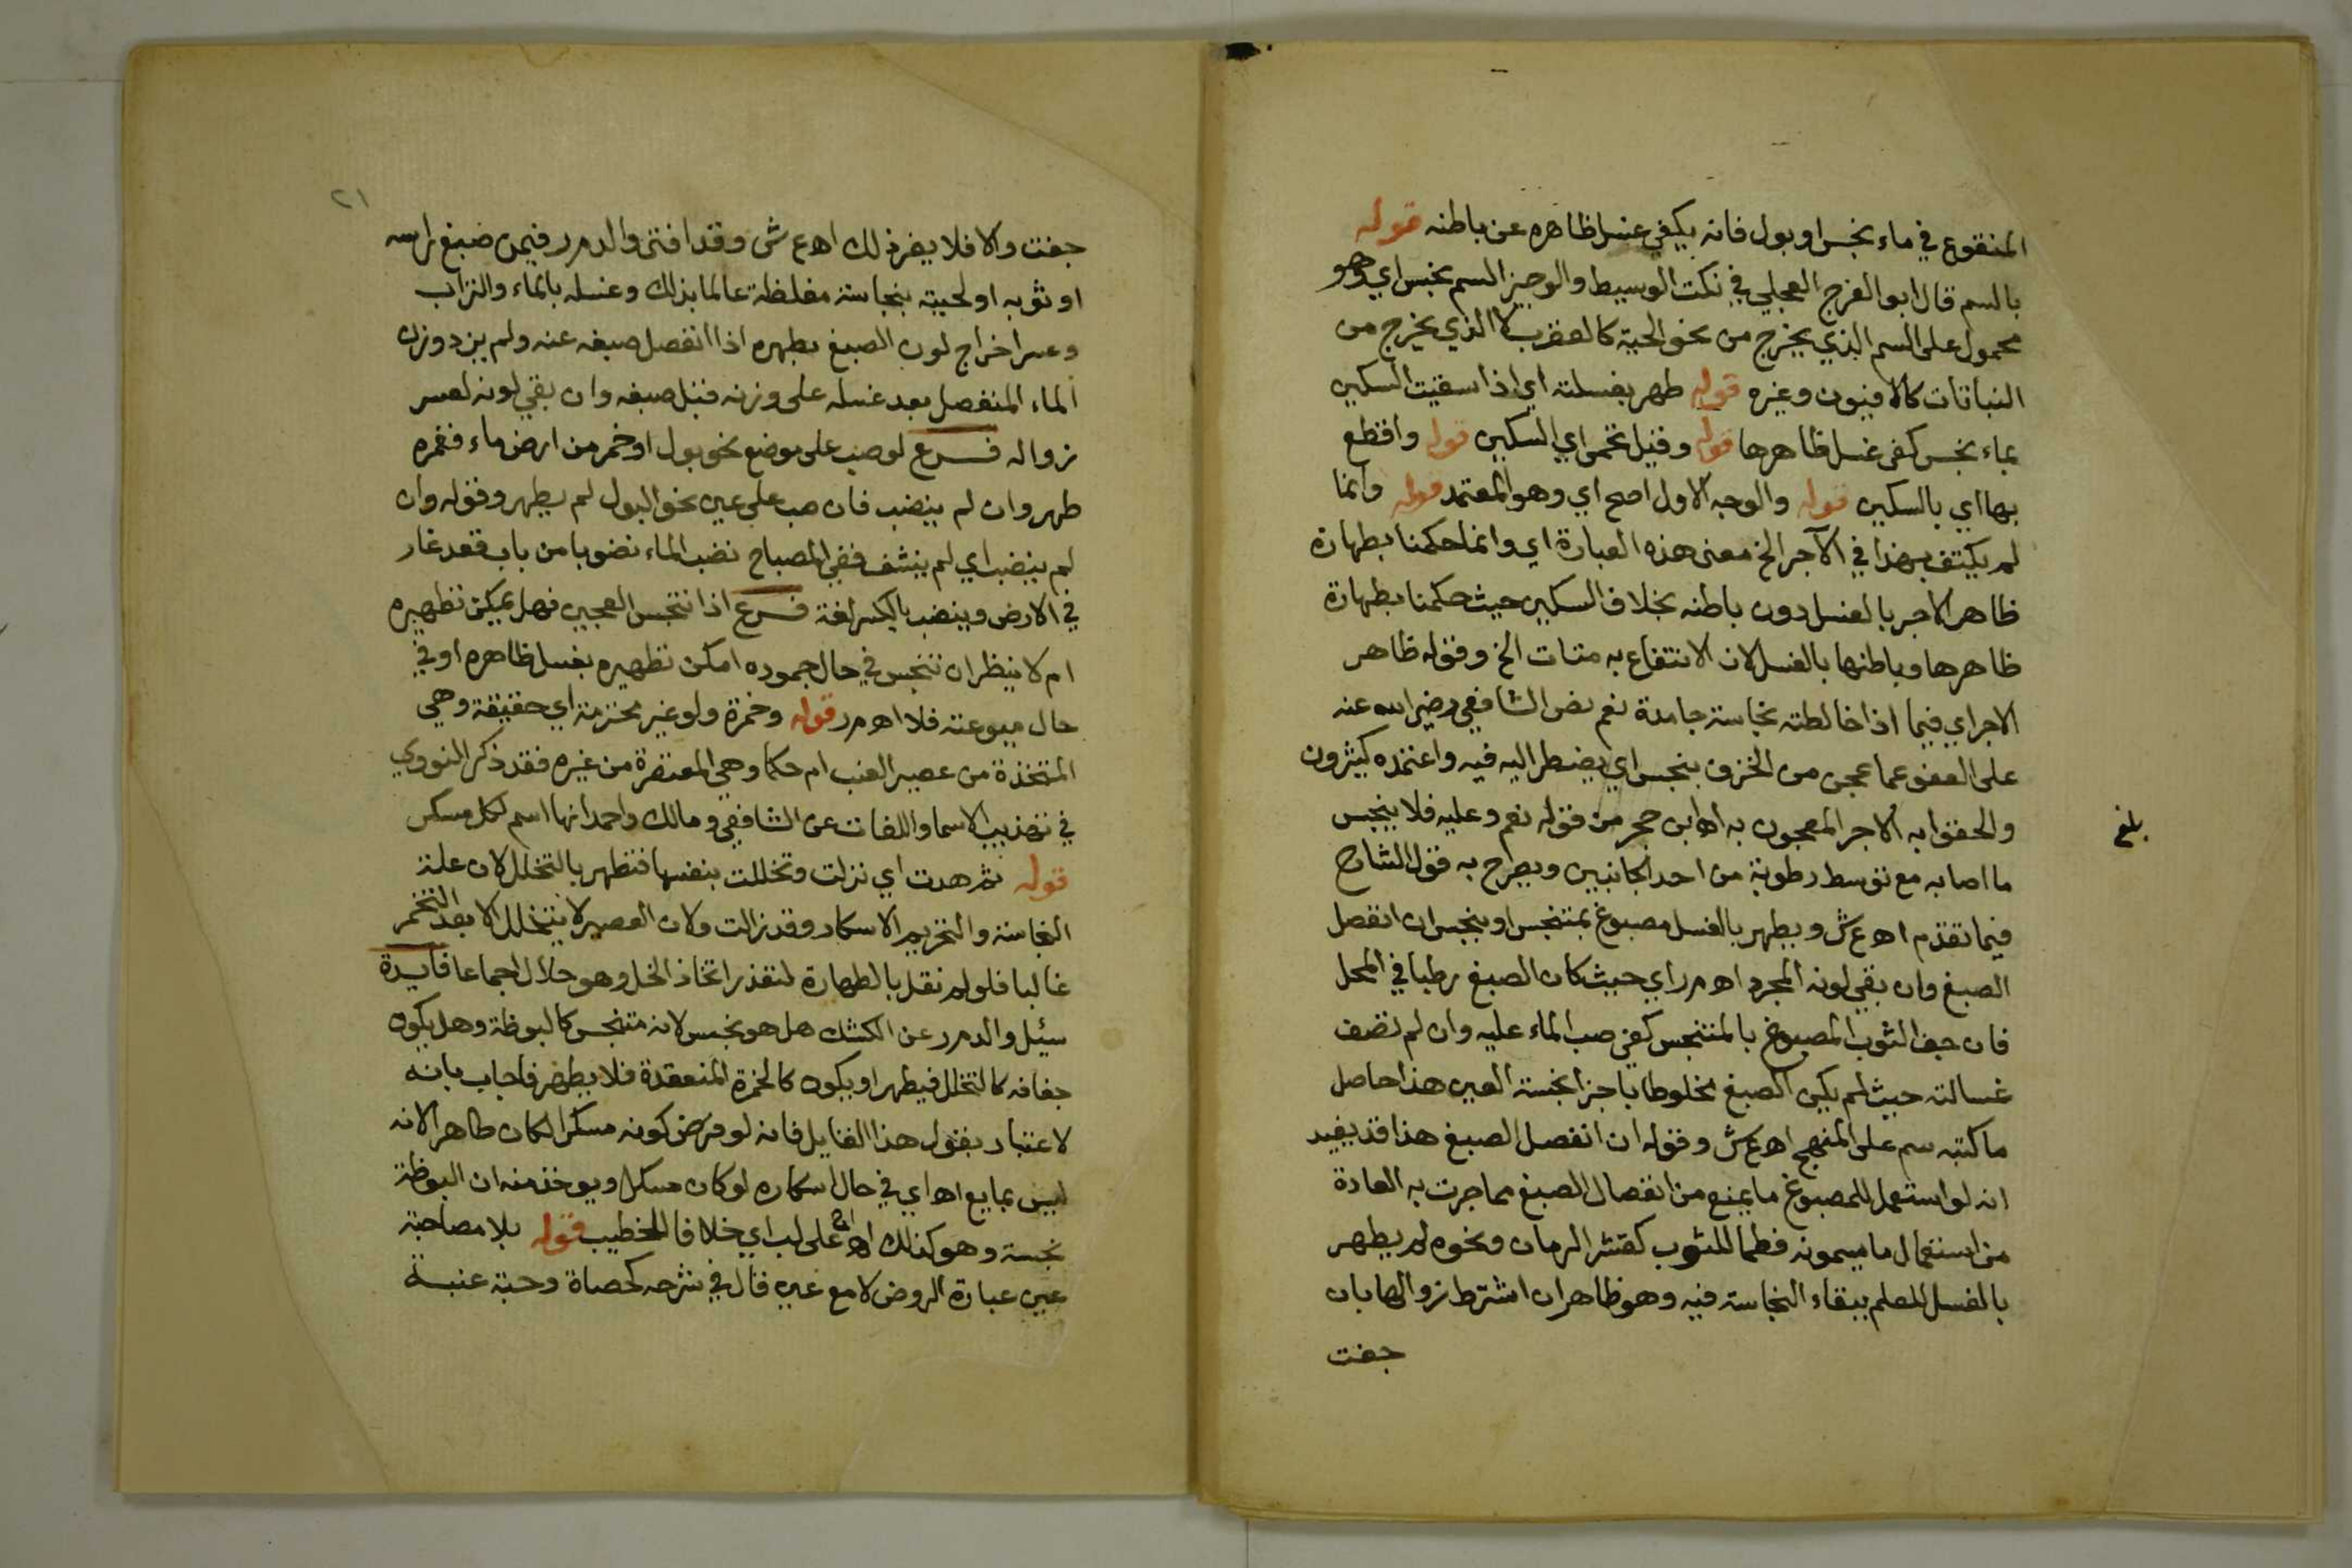 المنقوع في ماء نجس او بول فانه يكفي غسل ظاهره عن باطنه قوله
بالسم قال ابو الفرج العجلي في نكت الوسيط والوجيز السم نجس اي وهو
محمول على السم الذي يخرج من نحو الحية كالعقرب لا الذي يخرج من
النباتات كالافيون وغيره قوله طهر بغسلته اي اذا سقيت السكين
بماء نجس كفى غسل ظاهرها قوله وقيل تحمى اي السكين قوله واقطع
بها اي بالسكين قوله والوجه الاول اصح اي وهو المعتمد قوله وانما
لم يكتف بهذا في الآجر الخ معنى هذه العبارة اي وانما حكمنا بطهارة
ظاهر الاجر بالغسل دون باطنه بخلاف السكين حيث حكمنا بطهارة
ظاهرها وباطنها بالغسل لان الانتفاع به متات الخ وقوله ظاهر
الاجر اي فيما اذا خالطته نجاسة جامدة نعم نص الشافعي رضي الله عنه
على العفو عما عجن من الخزف بنجس اي يضطر اليه فيه واعتمده كثيرون
والحقوا به الاجر المعجون به اه ابن حجر من قوله نعم وعليه فلا ينجس
بلغ
ما اصابه مع توسط رطوبة من احد الجانبين ويصرح به قول الشارح
فيما تقدم اه ع ش ويطهر بالغسل مصبوغ بمتنجس او بنجس ان انفصل
الصبغ وان بقي لونه المجرد اه م ر اي حيث كان الصبغ رطبا في المحل
فان جف الثوب المصبوغ بالمتنجس كفى صب الماء عليه وان لم تصف
غسالته حيث لم يكن الصبغ مخلوطا باجزا نجسة العين هذا حاصل
ما كتبه سم على المنهج اه ع ش وقوله ان انفصل الصبغ هذا قد يفيد
انه لو استعمل للمصبوغ ما يمنع من انفصال الصبغ مما جرت به العادة
من استعمال ما يسمونه فطما للثوب كقشر الرمان ونحوه لم يطهر
بالغسل للعلم ببقاء النجاسة فيه وهو ظاهر ان اشترط زوالها بان
جفت
٢١
جفت والا فلا يضر ذلك اه ع ش وقد افتى والد م ر فيمن صبغ راسه
او ثوبه او لحيته بنجاسة مغلظة عالما بذلك وغسله بالماء والتراب
وعسر اخراج لون الصبغ بطهره اذا انفصل صبغه عنه ولم يزد وزن
الماء المنفصل بعد غسله على وزنه قبل صبغه وان بقي لونه لعسر
زواله فرع لو صب على موضع نحو بول او خمر من ارض ماء فغمره
طهر وان لم ينضب فان صب على عين نحو البول لم يطهر وقوله وان
لم ينضب اي لم ينشف ففي المصباح نضب الماء نضوبا من باب قعد غار
في الارض وينضب بالكسر لغة فرع اذا تنجس العجين فهل يمكن تطهيره
ام لا ينظر ان تنجس في حال جموده امكن تطهيره بغسل ظاهره او في
حال ميوعته فلا اه م ر قوله وخمرة ولو غير محترمة اي حقيقة وهي
المتخذة من عصير العنب ام حكما وهي المعتصرة من غيره فقد ذكر النووي
في تهذيب الاسما واللغات عن الشافعي ومالك واحمد انها اسم لكل مسكر
قوله ثم هدت اي نزلت وتخللت بنفسها فتطهر بالتخلل لان علة
النجاسة والتحريم الاسكار وقد زالت ولان العصير لا يتخلل الا بعد التخمر
غالبا فلو لم نقل بالطهارة لتعذر اتخاذ الخل وهو حلال اجماعا فايدة
سيل والد م ر عن الكشك هل هو نجس لانه متنجس كالبوظة وهل يكون
جفافه كالتخلل فيطهر او يكون كالخمرة المنعقدة فلا يطهر فاجاب بانه
لا عتبار بقول هذا القايل فانه لو فرض كونه مسكرا لكان طاهرا لانه
ليس بمايع اه اي في حال اسكاره لو كان مسكرا ويوخذ منه ان البوظة
نجسة وهو كذلك اه ع ش على اي خلافا للخطيب قوله بلا مصاحبة
عين عبارة الروض لا مع عين قال في شرحه كحصاة وحبة عنبة